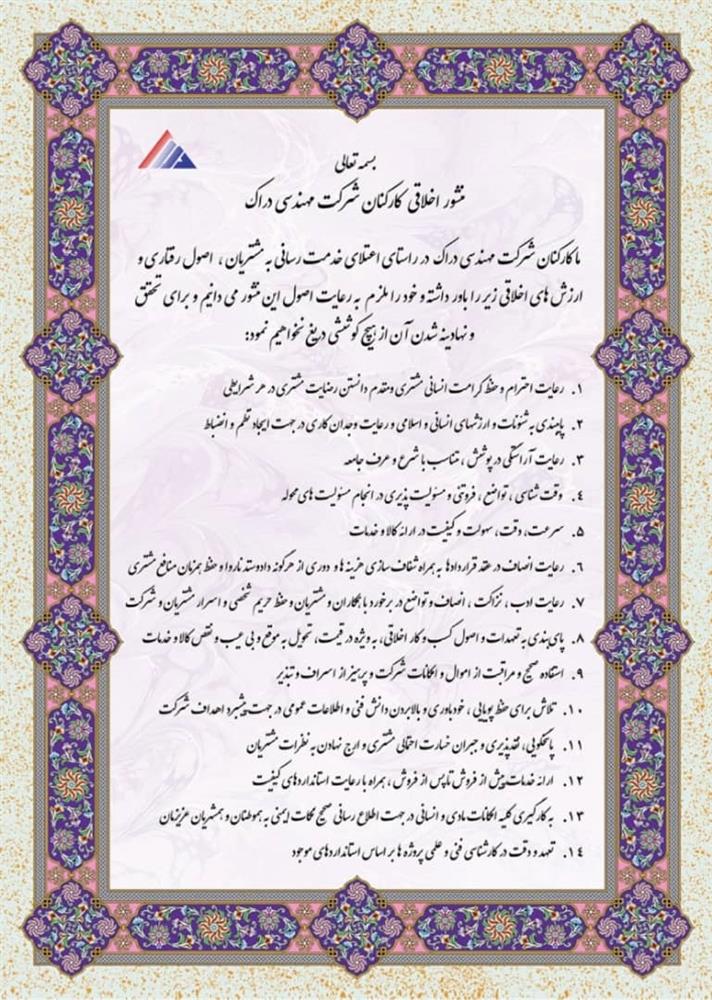 بسمه تعالی
منشور اخلاقی کارکنان شرکت مهندسی دراک
ما کارکنان شرکت مهندسی دراک در راستای اعتلای خدمت رسانی به مشتریان ، اصول رفتاری و
ارزش های اخلاقی زیر را باور داشته و خود را ملزم به رعایت اصول این منشور می دانیم و برای تحقق
و نهادینه شدن آن از هیچ کوششی دریغ نخواهیم نمود:
۱. رعایت احترام و حفظ کرامت انسانی مشتری ومقدم دانستن رضایت مشتری در هر شرایطی
۲. پایبندی به شئونات و ارزشهای انسانی و اسلامی و رعایت وجدان کاری در جهت ایجاد نظم و انضباط
۳. رعایت آراستگی در پوشش ، متناسب با شرع و عرف جامعه
٤. وقت شناسی ، تواضع ، فروتنی و مسئولیت پذیری در انجام مسئولیت های محوله
۵. سرعت، دقت، سهولت و کیفیت در ارائه کالا و خدمات
۶. رعایت انصاف در عقد قراردادها به همراه شفاف سازی هزینه ها و دوری از هرگونه دادوستد ناروا و حفظ همزمان منافع مشتری
۷. رعایت ادب ، نزاکت ، انصاف و تواضع در برخورد با همکاران و مشتریان و حفظ حریم شخصی و اسرار مشتریان و شرکت
۸. پای بندی به تعهدات و اصول کسب و کار اخلاقی، به ویژه در قیمت، تحویل به موقع و بی عیب و نقص کالا و خدمات
۹. استفاده صحیح و مراقبت از اموال و امکانات شرکت و پرهیز از اسراف و تبذیر
۱۰. تلاش برای حفظ پویایی ، خودباوری و بالابردن دانش فنی و اطلاعات عمومی در جهت پیشبرد اهداف شرکت
۱۱. پاسخگویی، نقدپذیری و جبران خسارت احتمالی مشتری و ارج نهادن به نظرات مشتریان
۱۲. ارائه خدمات پیش از فروش تا پس از فروش ، همراه با رعایت استانداردهای کیفیت
۱۳. به کارگیری کلیه امکانات مادی و انسانی در جهت اطلاع رسانی صحیح نکات ایمنی به هموطنان و همشهریان عزیزمان
۱٤. تعهد و دقت در کارشناسی فنی و علمی پروژه ها بر اساس استانداردهای موجود